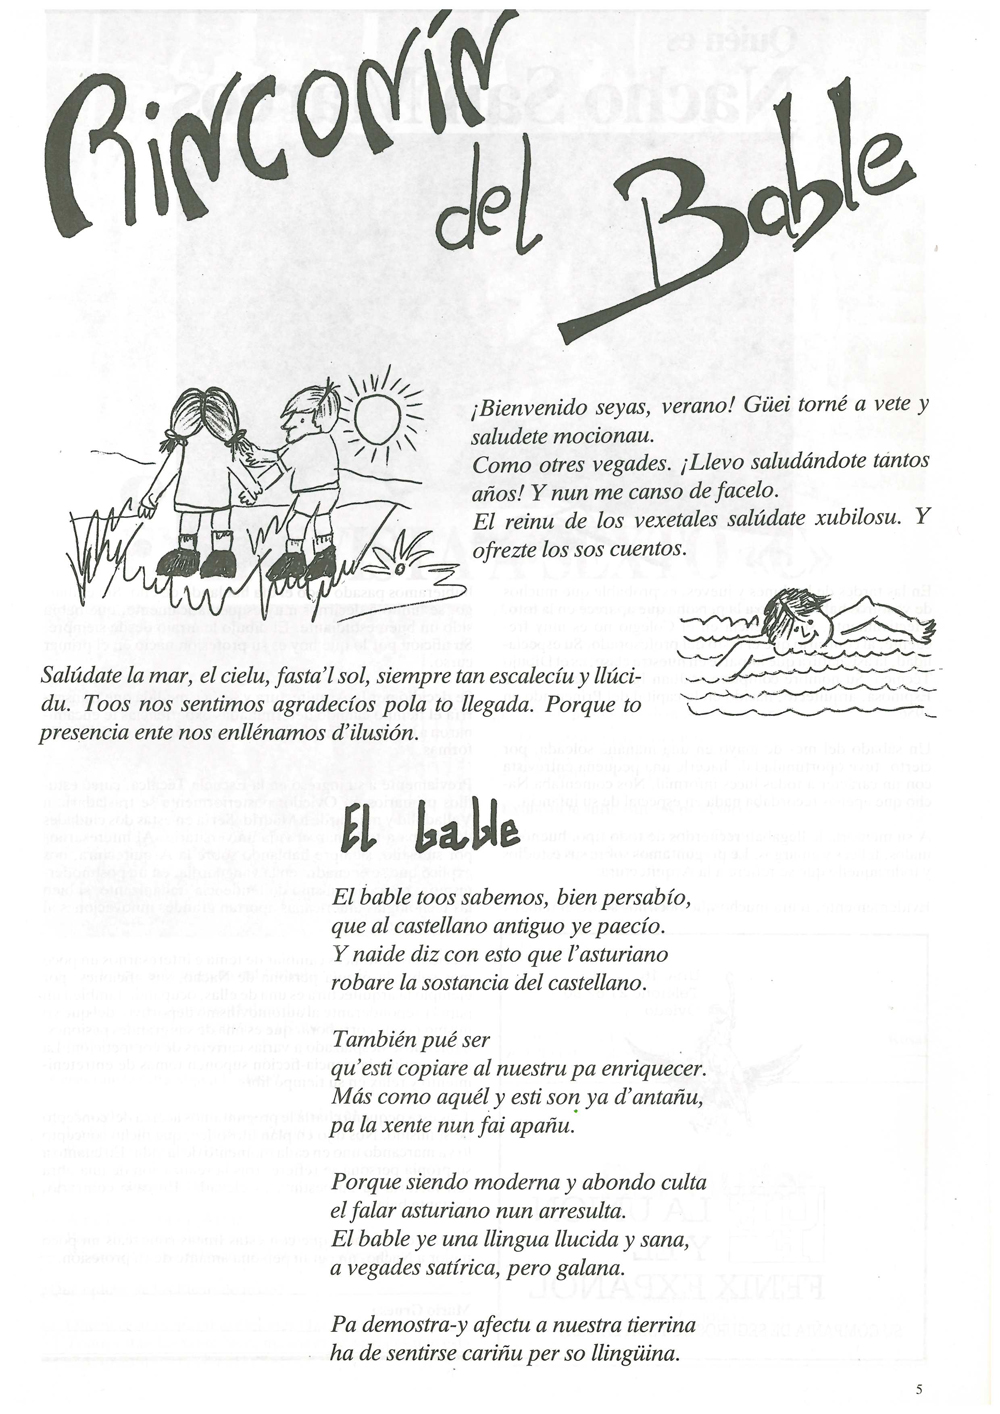 Rinconín
del Bable
¡Bienvenido seyas, verano! Güei torné a vete y
saludete mocionau.
Como otres vegades. ¡Llevo saludándote tantos
años! Y nun me canso de facelo.
El reinu de los vexetales salúdate xubilosu. Y
ofrezte los sos cuentos.
Salúdate la mar, el cielu, fasta’l sol, siempre tan escalecíu y llúci-
du. Toos nos sentimos agradecíos pola to llegada. Porque to
presencia ente nos enllénamos d’ilusión.
El bable
El bable toos sabemos, bien persabío,
que al castellano antiguo ye paecío.
Y naide diz con esto que l’asturiano
robare la sostancia del castellano.
También pué ser
qu’esti copiare al nuestru pa enriquecer.
Más como aquél y esti son ya d’antañu,
pa la xente nun fai apañu.
Porque siendo moderna y abondo culta
el falar asturiano nun arresulta.
El bable ye una llingua llucida y sana,
a vegades satírica, pero galana.
Pa demostra-y afectu a nuestra tierrina
ha de sentirse cariñu per so llingüina.
5